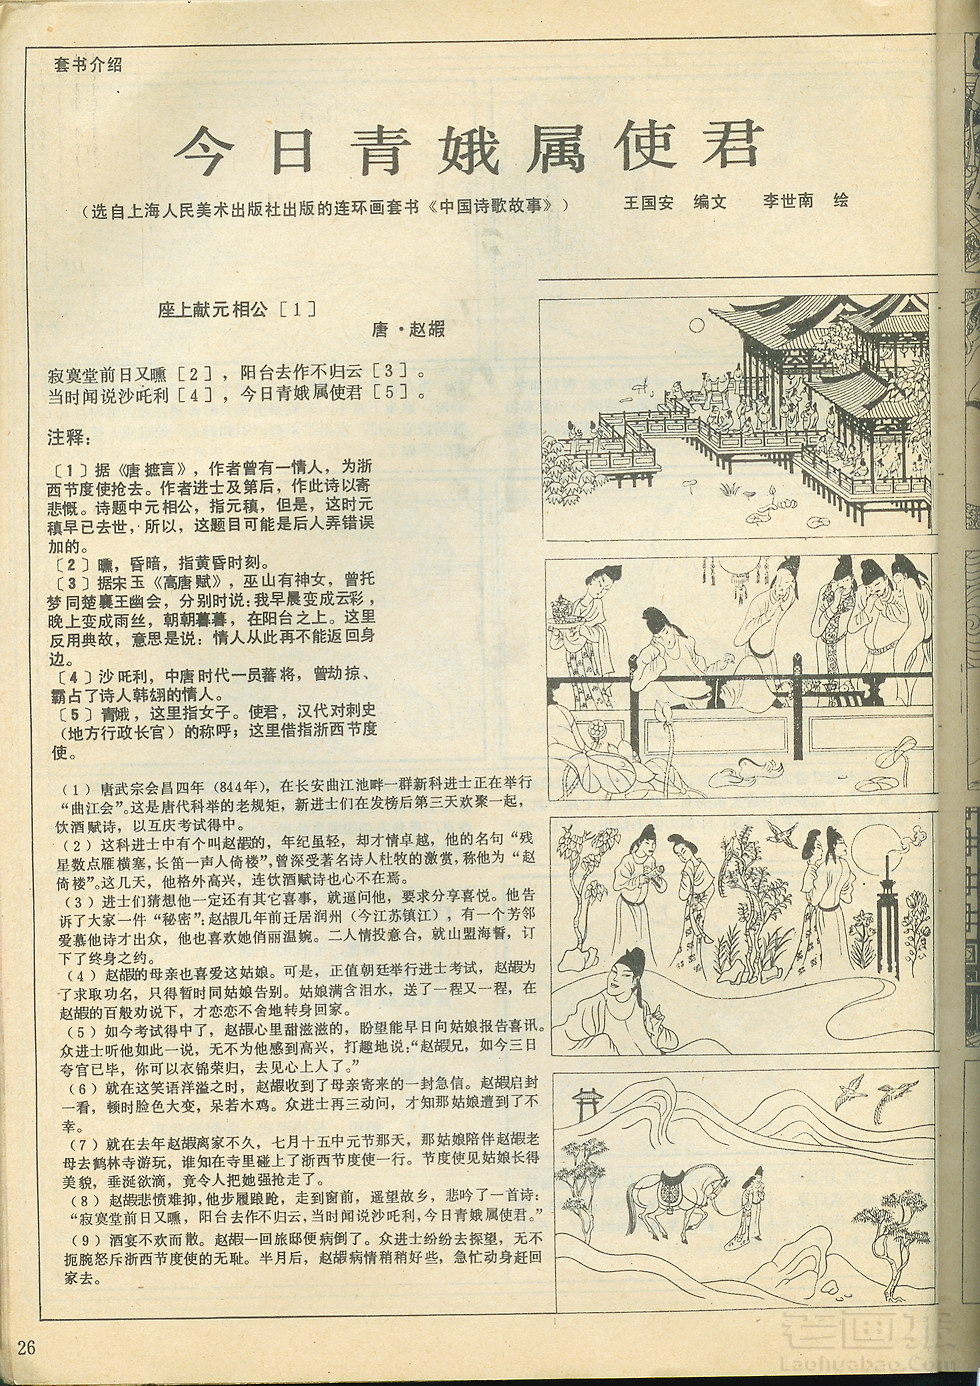 套书介绍
今日青娥属使君
（选自上海人民美术出版社出版的连环画套书《中国诗歌故事》） 王国安 编文 李世南 绘
座上献元相公［1］
唐·赵嘏
寂寞堂前日又曛［2］，阳台去作不归云［3］。
当时闻说沙吒利［4］，今日青娥属使君［5］。
注释：
〔1〕据《唐摭言》，作者曾有一情人，为浙
西节度使抢去。作者进士及第后，作此诗以寄
悲慨。诗题中元相公，指元稹，但是，这时元
稹早已去世，所以，这题目可能是后人弄错误
加的。
〔2〕曛，昏暗，指黄昏时刻。
〔3〕据宋玉《高唐赋》，巫山有神女，曾托
梦同楚襄王幽会，分别时说：我早晨变成云彩，
晚上变成雨丝，朝朝暮暮，在阳台之上。这里
反用典故，意思是说：情人从此再不能返回身
边。
〔4〕沙吒利，中唐时代一员蕃将，曾劫掠、
霸占了诗人韩翃的情人。
〔5〕青娥，这里指女子。使君，汉代对刺史
（地方行政长官）的称呼；这里借指浙西节度
使。
（1）唐武宗会昌四年（844年），在长安曲江池畔一群新科进士正在举行
“曲江会”。这是唐代科举的老规矩，新进士们在发榜后第三天欢聚一起，
饮酒赋诗，以互庆考试得中。
（2）这科进士中有个叫赵嘏的，年纪虽轻，却才情卓越，他的名句“残
星数点雁横塞，长笛一声人倚楼”，曾深受著名诗人杜牧的激赏，称他为“赵
倚楼”。这几天，他格外高兴，连饮酒赋诗也心不在焉。
（3）进士们猜想他一定还有其它喜事，就逼问他，要求分享喜悦。他告
诉了大家一件“秘密”：赵嘏几年前迁居润州（今江苏镇江），有一个芳邻
爱慕他诗才出众，他也喜欢她俏丽温婉。二人情投意合，就山盟海誓，订
下了终身之约。
（4）赵嘏的母亲也喜爱这姑娘。可是，正值朝廷举行进士考试，赵嘏为
了求取功名，只得暂时同姑娘告别。姑娘满含泪水，送了一程又一程，在
赵嘏的百般劝说下，才恋恋不舍地转身回家。
（5）如今考试得中了，赵嘏心里甜滋滋的，盼望能早日向姑娘报告喜讯。
众进士听他如此一说，无不为他感到高兴，打趣地说：“赵嘏兄，如今三日
夸官已毕，你可以衣锦荣归，去见心上人了。”
（6）就在这笑语洋溢之时，赵嘏收到了母亲寄来的一封急信。赵嘏启封
一看，顿时脸色大变，呆若木鸡。众进士再三动问，才知那姑娘遭到了不
幸。
（7）就在去年赵嘏离家不久，七月十五中元节那天，那姑娘陪伴赵嘏老
母去鹤林寺游玩，谁知在寺里碰上了浙西节度使一行。节度使见姑娘长得
美貌，垂涎欲滴，竟令人把她强抢走了。
（8）赵嘏悲愤难抑，他步履踉跄，走到窗前，遥望故乡，悲吟了一首诗：
“寂寞堂前日又曛，阳台去作不归云，当时闻说沙吒利，今日青娥属使君。”
（9）酒宴不欢而散。赵嘏一回旅邸便病倒了。众进士纷纷去探望，无不
扼腕怒斥浙西节度使的无耻。半月后，赵嘏病情稍稍好些，急忙动身赶回
家去。
26
老画报
Laohuabao.Com